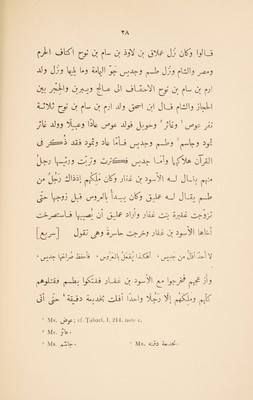 ٢٨
قالوا وكان نزل عملاق بن لاوذ بن سام بن نوح اكناف الحرم
ومصر والشام ونزل طسم وجديس جو اليمامة وما يليها ونزل ولد
ارم بن سام بن نوح الاحقاف الى عالج ويبرين والحجر بين
الحجاز والشام قال ابن اسحق ولد ارم بن سام بن نوح ثلاثة
نفر عوص¹ وغاثر² وحويل فولد عوص عادًا وعبيلًا وولد غاثر
ثمود وجاسم³ وطسم وجديس فأما عاد وثمود فقد ذكر في
القرآن هلاكهما وأما جديس فكثرت وربت ورئيسها رجل
منهم يقال له الأسود بن غفار وكان ملكهم إذذاك رجل من
طسم يقال له عمليق وكان يبدأ بالعروس قبل زوجها حتى
تزوجت عفيرة بنت غفار وأراد عمليق أن يصيبها فاستصرخت
أخاها الأسود بن غفار وخرجت حاسرة وهي تقول [سريع]
لا أحد أذل من جديس، أهكذا يفعل بالعروس،
عجهم فخرجوا مع الأسود بن غفار ففتكوا بطسم فقتلوهم
كلهم وملكهم إلا رجلا واحدا أفلت حتى أتى
¹ Ms. عوض; cf Tabari, I, 214, note c.
² Ms. عاثر.
³ Ms. جاشم.
⁴ Ms.